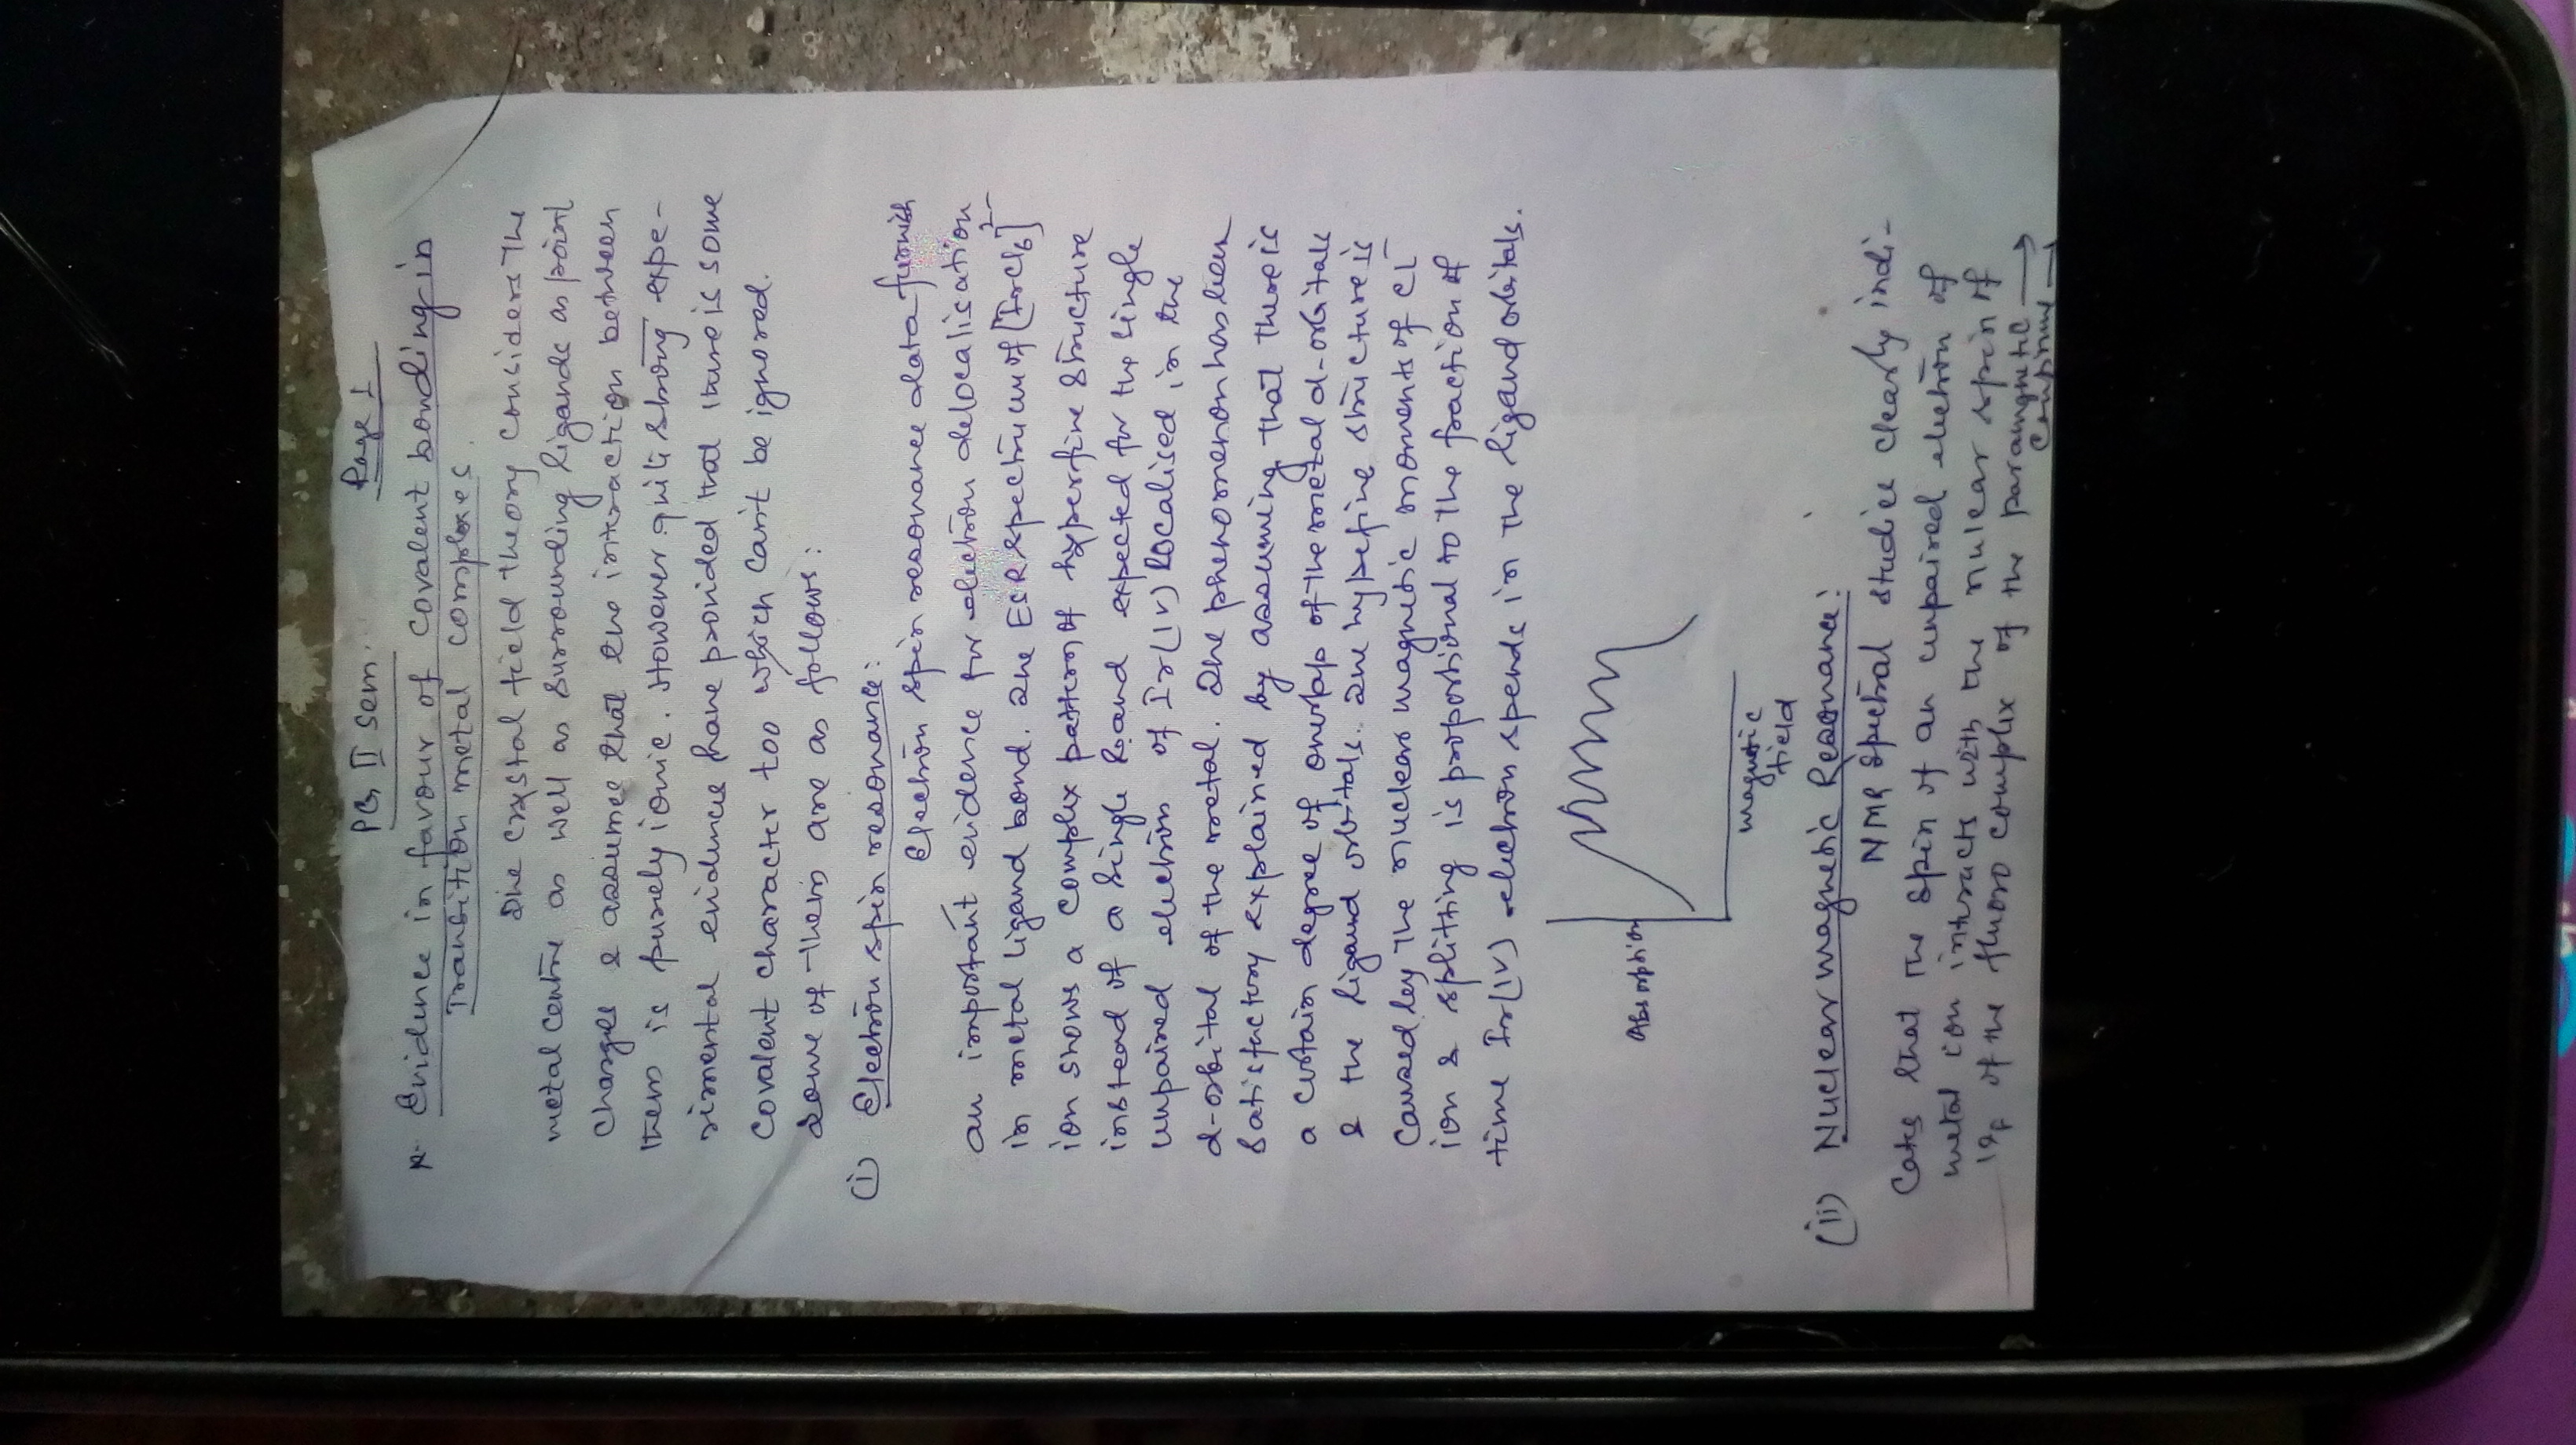 PG II Sem. Page 1
* Evidence in favour of covalent bonding in
Transition metal complexes.
The crystal field theory considers the
metal centre as well as surrounding ligands as point
charges & assumes that the interaction between
them is purely ionic. However quite strong expe-
rimental evidences have provided that there is some
covalent character too which can't be ignored.
Some of them are as follows:
(i) Electron spin resonance:
Electron spin resonance data furnish
an important evidence for electron delocalisation
in metal ligand bond. The ESR spectrum of [IrCl6]2-
ion shows a complex pattern of hyperfine structure
instead of a single band expected for the single
unpaired electron of Ir(IV) localised in the
d-orbital of the metal. The phenomenon has been
satisfactory explained by assuming that there is
a certain degree of overlap of the metal d-orbitals
& the ligand orbitals. The hypefine structure is
caused by the nuclear magnetic moments of Cl-
ion & splitting is proportional to the fraction of
time Ir(IV) electron spends in the ligand orbitals.
Absorption
magnetic
field
(ii) Nuclear magnetic Resonance:
NMR spectral studies clearly indi-
cates that the spin of an unpaired electron of
metal ion interacts with the nulear spin of
19F of the fluoro complex of the paramgnetic →
compound →